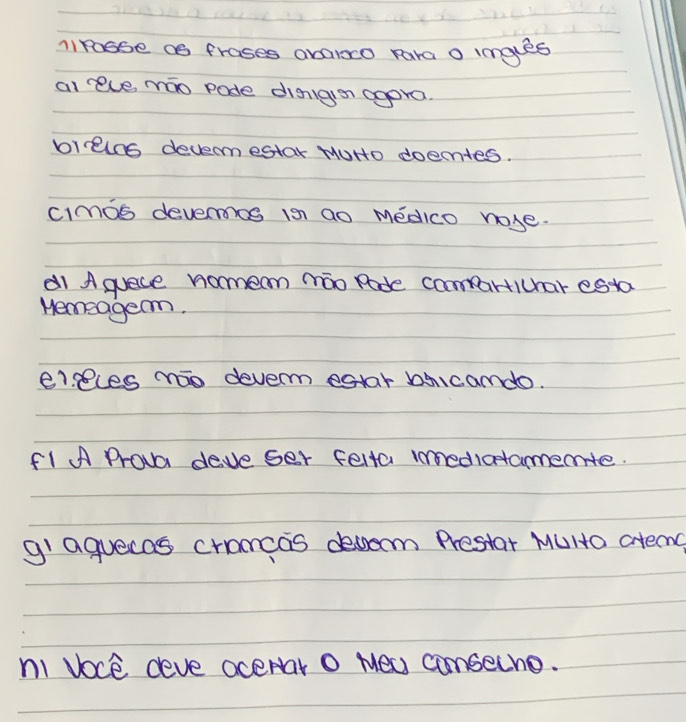 1) Passe as frases abaixo para o inglês
a) Ele não pode dirigir agora.
b) Elas devem estar muito doentes.
c) nós devemos ir ao médico hoje.
d) Aquele homem não pode compartilhar esta
Mensagem.
e) Eles não devem estar brincando.
f) A Prova deve ser feita imediatamente.
g) aquelas crianças devem Prestar Muito atenç
h) Você deve aceitar o Meu conselho.